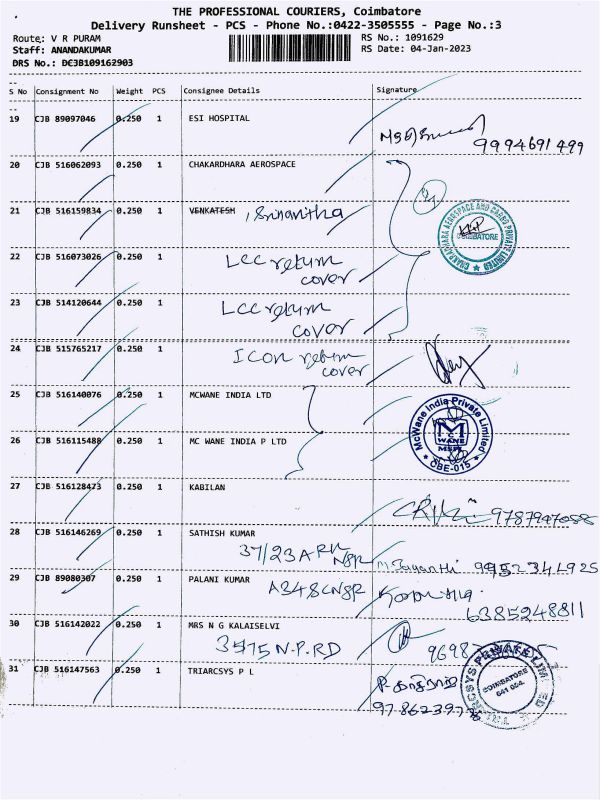 THE PROFESSIONAL COURIERS, Coimbatore
Delivery Runsheet - PCS - Phone No.:0422-3505555 - Page No.:3
Route: V R PURAM
RS No.: 1091629
Staff: ANANDAKUMAR
RS Date: 04-Jan-2023
DRS No.: DCJB109162903
S No Consignment No Weight PCS Consignee Details Signature
19 CJB 89097046 0.250 1 ESI HOSPITAL
9994691499
20 CJB 516062093 0.250 1 CHAKARDHARA AEROSPACE
21 CJB 516159834 0.250 1 VENKATESH , Srinanitha
CHAKRADHARA AEROSPACE AND CARGO PRIVATE LIMITED
COIMBATORE
22 CJB 516073026 0.250 1 LCC return
cover
23 CJB 514120644 0.250 1 LCC return
cover
24 CJB 515765217 0.250 1 ICON return
cover
25 CJB 516140076 0.250 1 MCWANE INDIA LTD
McWane India Private Limited
M
WANE
OBE-015
26 CJB 516115488 0.250 1 MC WANE INDIA P LTD
27 CJB 516128473 0.250 1 KABILAN
9787947088
28 CJB 516146269 0.250 1 SATHISH KUMAR
37/23 A RK NGR M. Jayanthi 9952341925
29 CJB 89080307 0.250 1 PALANI KUMAR
A348 CNGR
6385248811
30 CJB 516142022 0.250 1 MRS N G KALAISELVI
3575 N.P.RD
31 CJB 516147563 0.250 1 TRIARCSYS P L
9786239776
COIMBATORE
641 004.